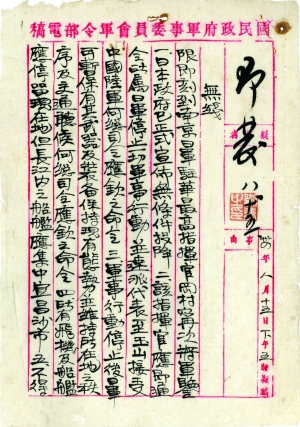 國民政府軍事委員會軍令部電稿
即發
八 十五
年八月十五日下午五時擬稿
無線
限即刻到南京日軍駐華最高指揮官岡村寧次將軍鑒
一日本政府已正式宣佈無條件投降二該指揮官應即通
令所屬日軍停止一切軍事行動並速派代表至玉山接受
中國陸軍何總司令應欽之命令三軍事行動停止後日軍
可暫保有其武器及裝備保持現有態勢並維持所在地之秩
序及交通聽候何總司令應欽之命令四所有飛機及船艦
應停留現在地但長江內之船艦應集中宜昌沙市五不得